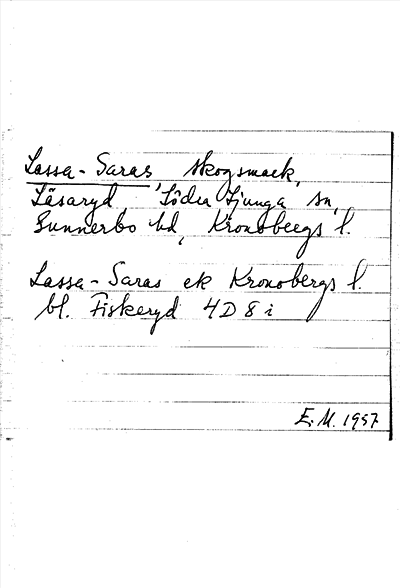 Lassa-Saras skogsmack,
Läsaryd, Södra Ljunga sn,
Sunnerbo hd, Kronobergs l.
Lassa-Saras ek Kronobergs l.
bl. Fiskeryd 4D 8 i
E. M. 1957